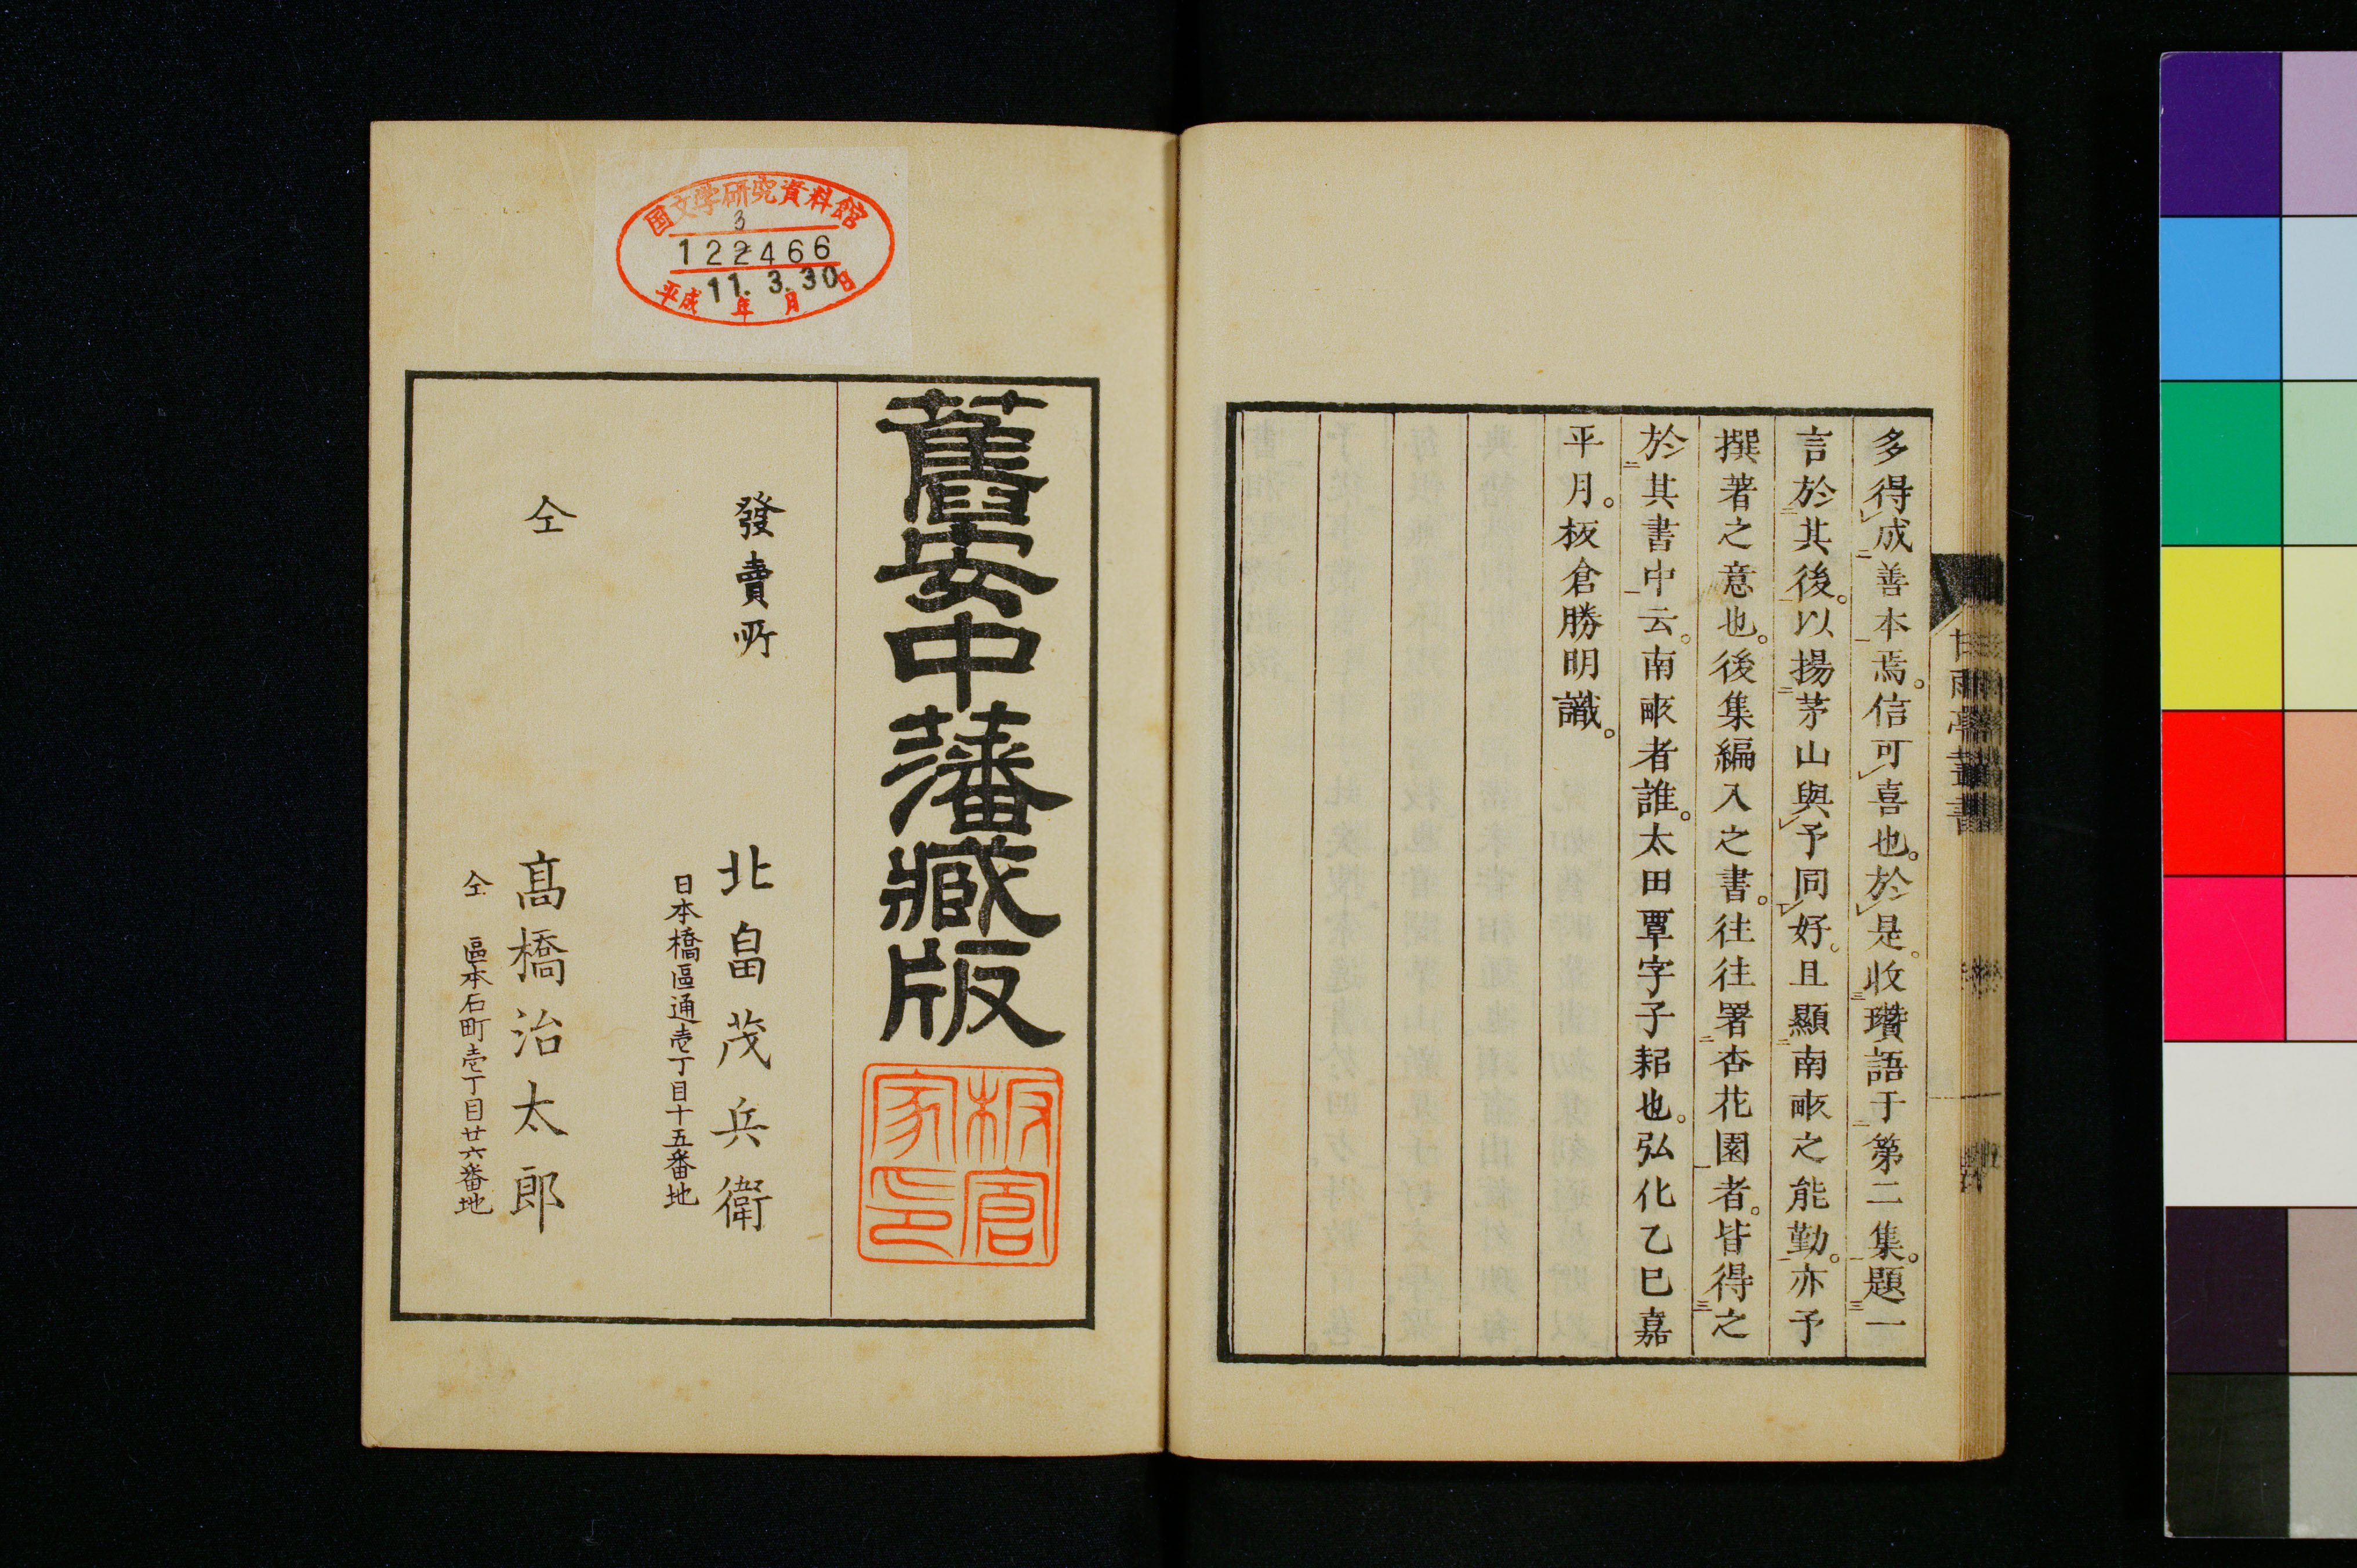 多得成善本焉。信可喜也。於是。收瓚語于第二集。題一
言於其後。以揚茅山與予同好。且顯南畝之能勤。亦予
撰著之意也。後集編入之書。往往署杏花園者。皆得之
於其書中云。南畝者誰。太田覃字子耜也。弘化乙巳嘉
平月。板倉勝明識。
甘雨亭叢書
舊安中藩藏版
板倉家印
發賣所
北畠茂兵衛
日本橋區通壱丁目十五番地
仝
髙橋治太郎
仝 區本石町壱丁目廿六番地
国文学研究資料館
3
122466
平成11年3月30日